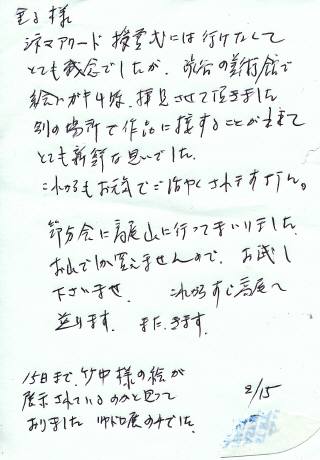 様
シネマアワード 授賞式には行けなくて
とても残念でしたが、渋谷の美術館で
絵ハガキ4領、拝見させて頂きました
別の場所で作品に接することが出来て
とても新鮮な思いでした。
これからもお元気でご活やくされますように。
節分会に高尾山に行ってまいりました
お山でしか買えませんので、お試し
下さいませ、 これからすぐ高尾へ
登ります、 また、きます。
15日まで、竹中様の絵が
展示されているのかと思って
おりました 展の中でした。
2/15